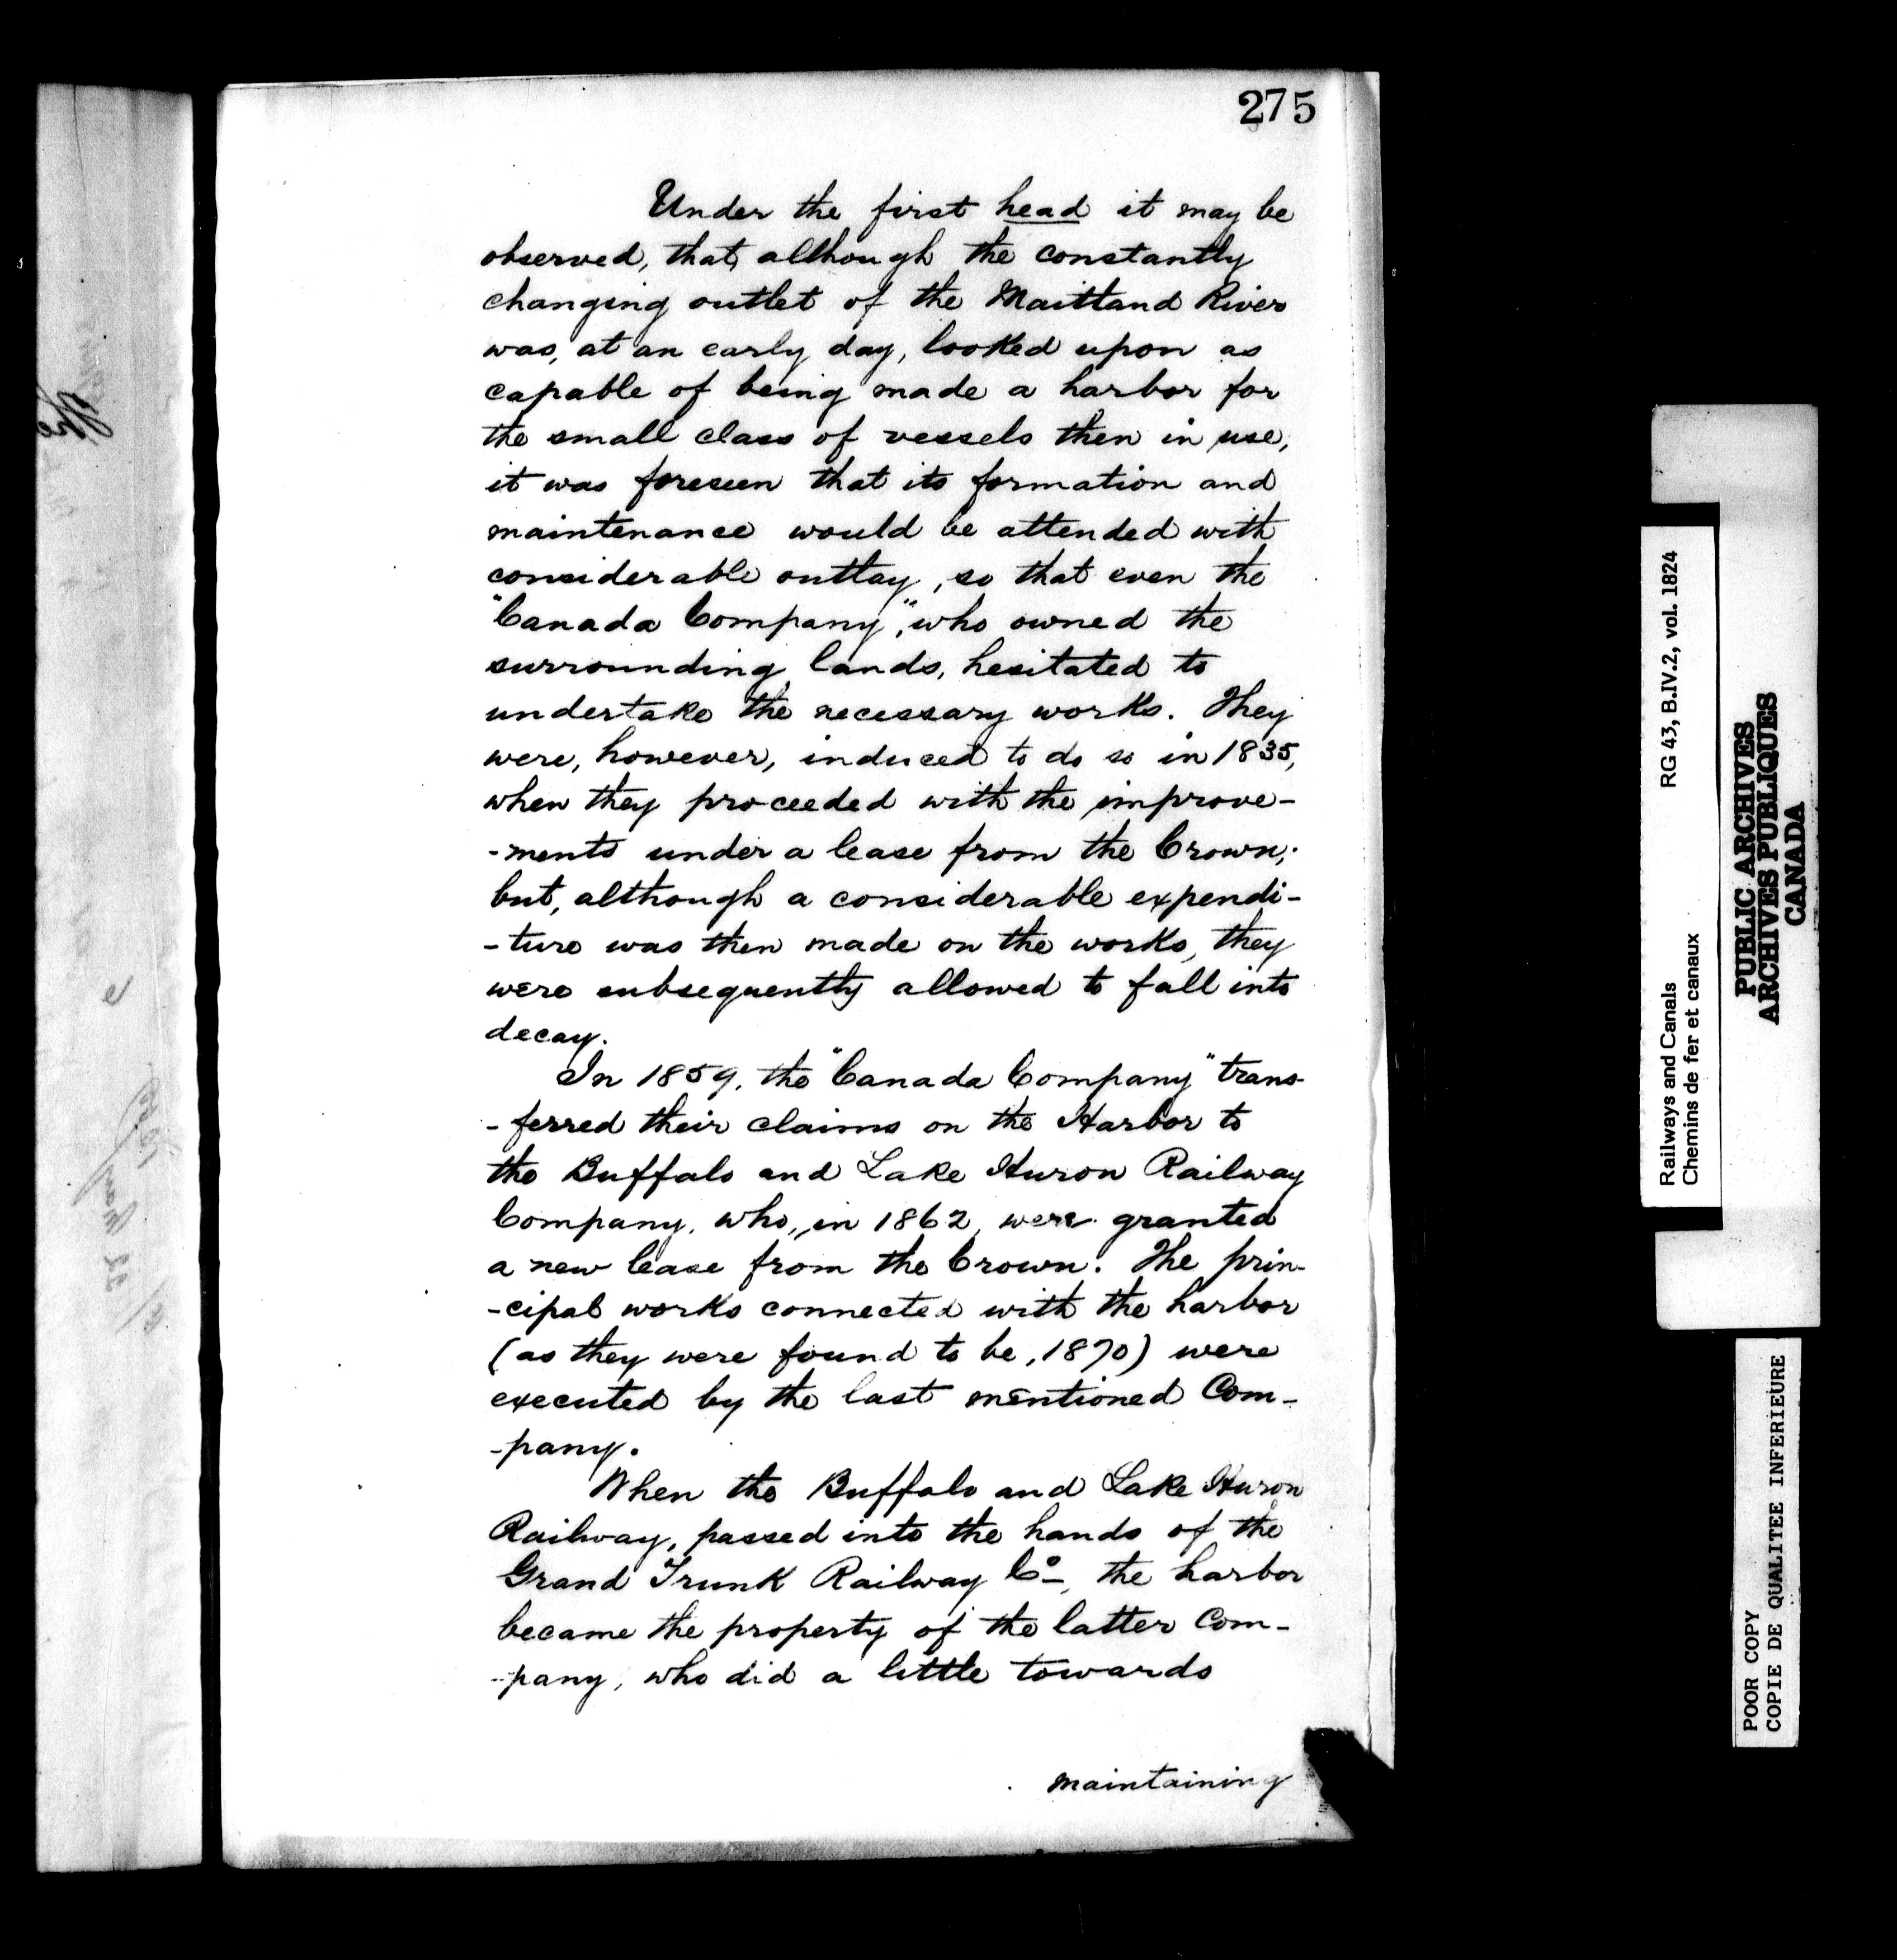 275
Under the first head it may be
observed, that, although the constantly
changing outlet of the Maitland River
was, at an early day, looked upon as
capable of being made a harbor for
the small class of vessels then in use,
it was foreseen that its formation and
maintenance would be attended with
considerable outlay, so that even the
"Canada Company", who owned the
surrounding lands, hesitated to
undertake the necessary works. They
were, however, induced to do so in 1835,
when they proceeded with the improve-
-ments under a lease from the Crown;
but, although a considerable expendi-
-ture was then made on the works, they
were subsequently allowed to fall into
decay.
In 1859, the "Canada Company" trans-
-ferred their claims on the Harbor to
the Buffalo and Lake Huron Railway
Company, who, in 1862, were granted
a new lease from the Crown. The prin-
-cipal works connected with the harbor
(as they were found to be, 1870) were
executed by the last mentioned Com-
-pany.
When the Buffalo and Lake Huron
Railway, passed into the hands of the
Grand Trunk Railway Co, the harbor
became the property of the latter Com-
-pany, who did a little towards
maintaining
Railways and Canals RG 43, B.IV.2, vol. 1824
Chemins de fer et canaux
PUBLIC ARCHIVES
ARCHIVES PUBLIQUES
CANADA
POOR COPY
COPIE DE QUALITEE INFERIEURE